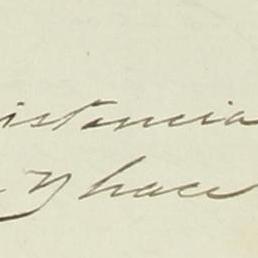 istancia
y hace